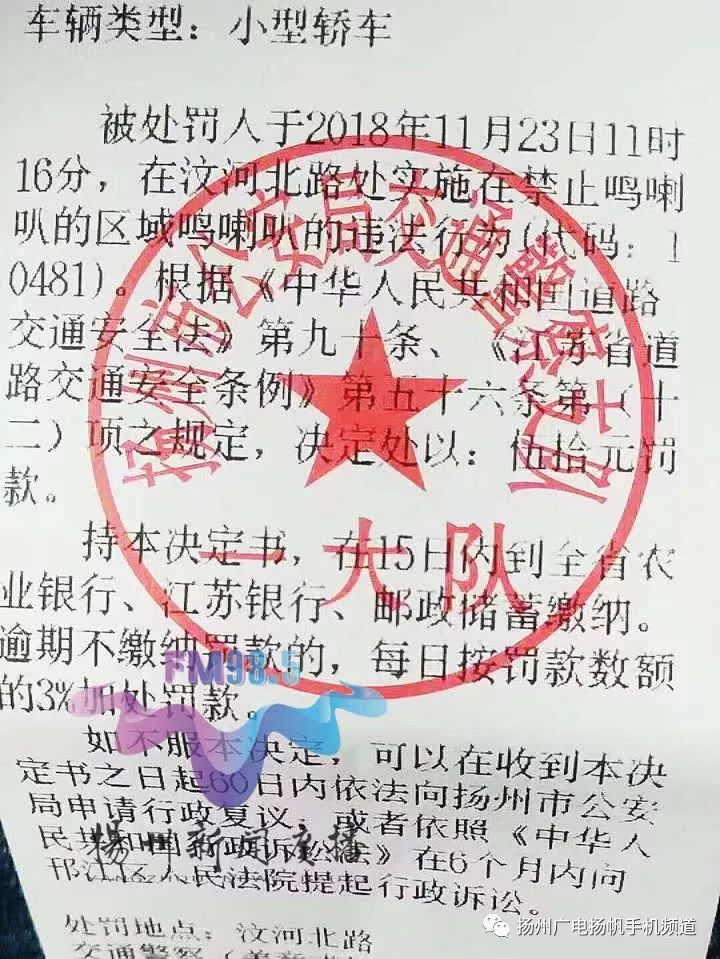 车辆类型：小型轿车
被处罚人于2018年11月23日11时
16分，在汶河北路处实施在禁止鸣喇
叭的区域鸣喇叭的违法行为(代码：1
0481)。根据《中华人民共和国道路
交通安全法》第九十条、《江苏省道
路交通安全条例》第五十六条第（十
二）项之规定，决定处以：伍拾元罚
款。
持本决定书，在15日内到全省农
业银行、江苏银行、邮政储蓄缴纳。
逾期不缴纳罚款的，每日按罚款数额
的3%加处罚款。
如不服本决定，可以在收到本决
定书之日起60日内依法向扬州市公安
局申请行政复议，或者依照《中华人
民共和国行政诉讼法》在6个月内向
邗江区人民法院提起行政诉讼。
处罚地点：汶河北路
交通警察
扬州市公安局交通警察支队
一大队
FM98.5
扬州新闻广播
扬州广电扬帆手机频道